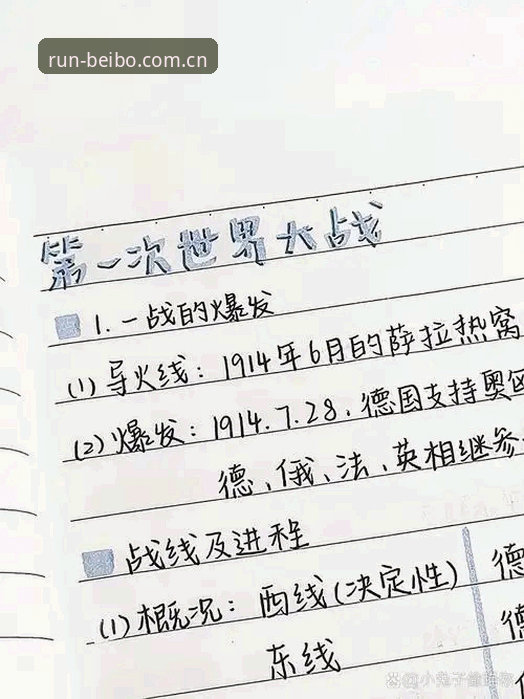 run-beibo.com.cn
第一次世界大战
1.一战的爆发
(1)导火线：1914年6月的萨拉热窝
(2)爆发：1914.7.28.德国支持奥匈
德、俄、法、英相继参
战线及进程
德
(1)概况：西线(决定性)
德
东线
@小兔子